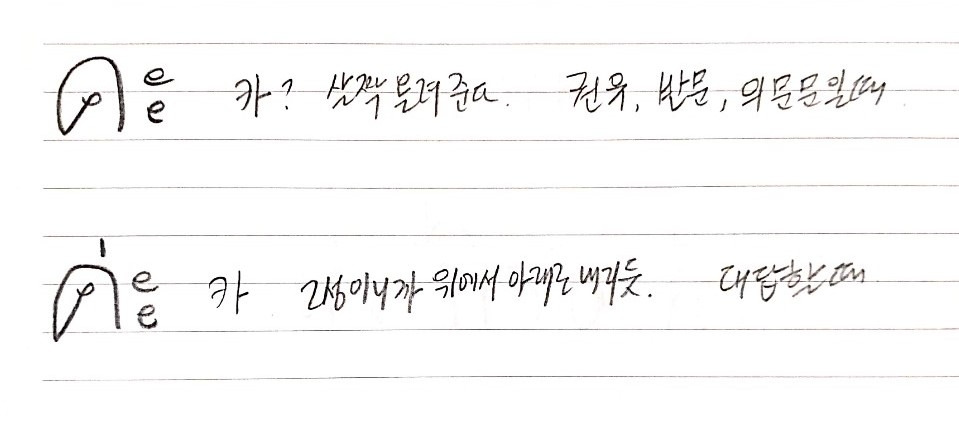 คะ 카? 살짝 올려준다. 권유, 반문, 의문문일때
ค่ะ 카 2성이니까 위에서 아래로 내리듯. 대답할때